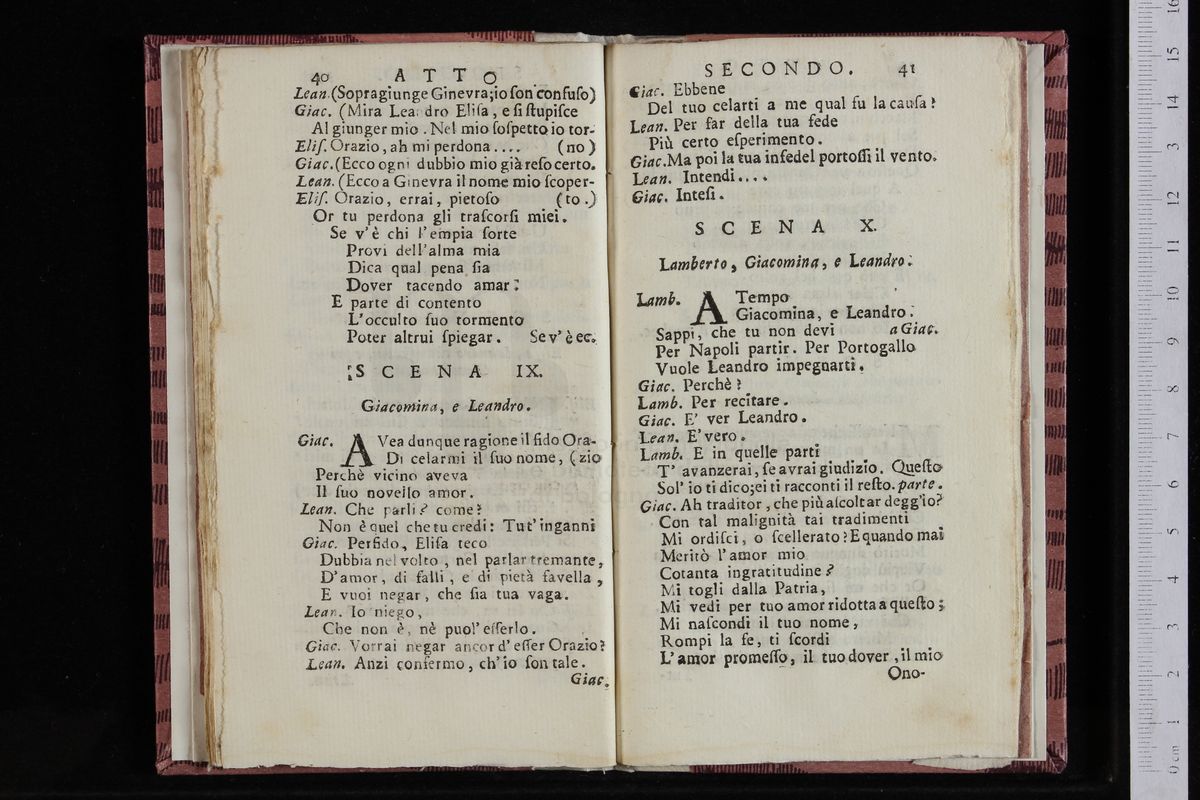 40 ATTO
Lean. (Sopragiunge Ginevra; io son confuso)
Giac. (Mira Leandro Elisa, e si stupisce
Al giunger mio. Nel mio sospetto io tor-
Elis. Orazio, ah mi perdona.... (no)
Giac. (Ecco ogni dubbio mio già reso certo.
Lean. (Ecco a Ginevra il nome mio scoper-
Elis. Orazio, errai, pietoso (to.)
Or tu perdona gli trascorsi miei.
Se v'è chi l'empia sorte
Provi dell'alma mia
Dica qual pena sia
Dover tacendo amar:
E parte di contento
L'occulto suo tormento
Poter altrui spiegar. Se v'è ec.
SCENA IX.
Giacomina, e Leandro.
Giac. AVea dunque ragione il fido Ora-
Di celarmi il suo nome, (zio
Perchè vicino aveva
Il suo novello amor.
Lean. Che parli? come?
Non è quel che tu credi: Tu t'inganni
Giac. Perfido, Elisa teco
Dubbia nel volto, nel parlar tremante,
D'amor, di falli, e di pietà favella,
E vuoi negar, che sia tua vaga.
Lean. Io niego,
Che non è, nè puol' esserlo.
Giac. Vorrai negar ancor d'esser Orazio?
Lean. Anzi confermo, ch'io son tale.
Giac.
SECONDO. 41
Giac. Ebbene
Del tuo celarti a me qual fu la causa?
Lean. Per far della tua fede
Più certo esperimento.
Giac. Ma poi la tua infedel portossi il vento.
Lean. Intendi....
Giac. Intesi.
SCENA X.
Lamberto, Giacomina, e Leandro.
Lamb. A Tempo
Giacomina, e Leandro.
Sappi, che tu non devi a Giac.
Per Napoli partir. Per Portogallo
Vuole Leandro impegnarti.
Giac. Perchè?
Lamb. Per recitare.
Giac. E' ver Leandro.
Lean. E' vero.
Lamb. E in quelle parti
T' avanzerai, se avrai giudizio. Questo
Sol' io ti dico; ei ti racconti il resto. parte.
Giac. Ah traditor, che più ascoltar degg'io?
Con tal malignità tai tradimenti
Mi ordisci, o scellerato? E quando mai
Meritò l'amor mio
Cotanta ingratitudine?
Mi togli dalla Patria,
Mi vedi per tuo amor ridotta a questo;
Mi nascondi il tuo nome,
Rompi la fe, ti scordi
L'amor promesso, il tuo dover, il mio
Ono-
0 cm 1 2 3 4 5 6 7 8 9 10 11 12 3 14 15 16